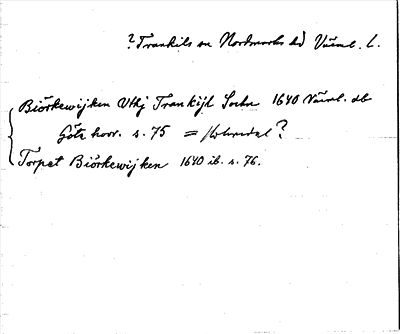 ? Trankils sn Nordmarks hd Värml. l.
Biörkewijken Uthj Trankijl Sochn 1640 Värml. db
Göts havr. s. 75 = ?
Torpet Biörkewijken 1640 ib. s. 76.